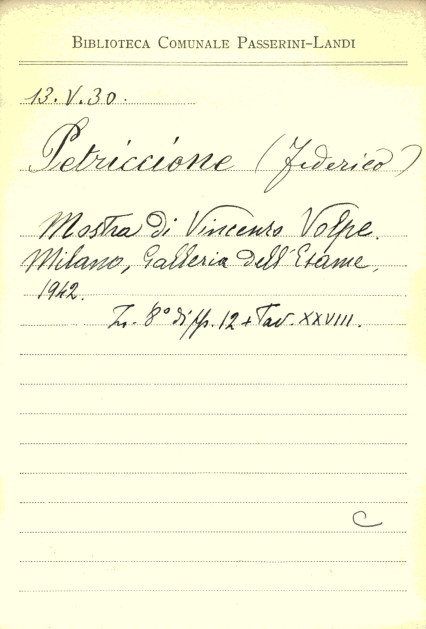 BIBLIOTECA COMUNALE PASSERINI-LANDI
13.V.30.
Petriccione (Federico)
Mostra di Vincenzo Volpe.
Milano, Galleria dell'Esame,
1942.
In. 8° di pp. 12 + Tav. XXVIII.
C